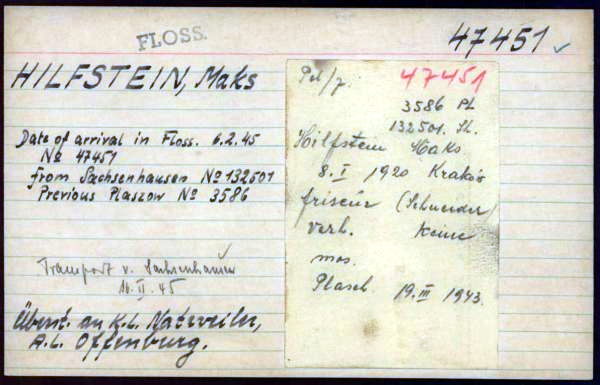 FLOSS.
47451
HILFSTEIN, Maks
Date of arrival in Floss. 6.2.45
No 47451
from Sachsenhausen No 132501
Previous Plaszow No 3586
Transport v. Sachsenhausen
16.II.45
Überst. an K.L. Natzweiler,
A.L. Offenburg.
Pol/j. 47451
3586 Pl.
132501. Sh.
Hilfstein Maks
8. I 1920 Kraków
friseur (Schneider
verh. keine
mos.
Plasch. 19. III 1943.